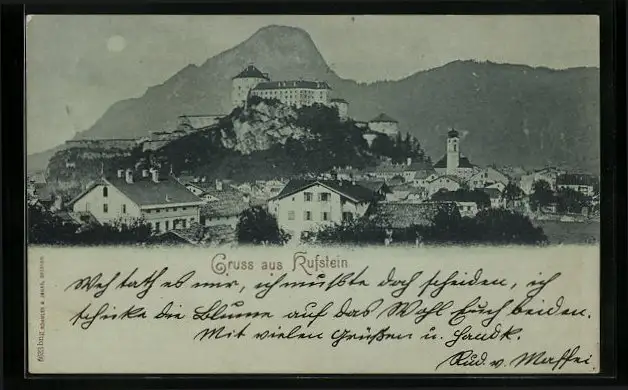 Gruss aus Kufstein
Weh tath es mir, ich mußte doch scheiden, ich
schicke die Blume auf das Wohl Euch beiden.
Mit vielen Grüßen u. Handk.
Rud. v.